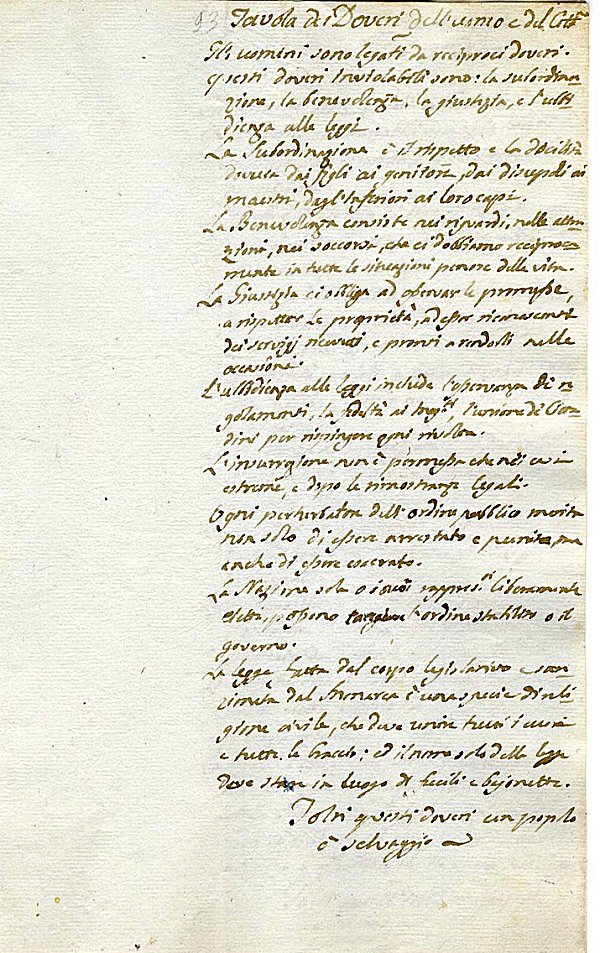 93 Tavola dei Doveri dell'uomo e del Citt.
Gli uomini sono legati da reciproci doveri.
questi doveri inviolabili sono: la subordina-
zione, la benevolenza, la giustizia, e l'ubbi-
dienza alle leggi.
La Subordinazione è il rispetto e la docilità
dovuta dai figli ai genitori, dai discepoli ai
maestri, dagl'Inferiori ai loro capi.
La Benevolenza consiste nei riguardi, nelle atten-
zioni, nei soccorsi, che ci dobbiamo reciproca-
mente in tutte le situazioni penose della vita.
La Giustizia ci obbliga ad osservar le promesse,
a rispettar le proprietà, ad esser riconoscenti
dei servizj ricevuti, e pronti a renderli nelle
occasioni.
L'ubbidienza alle leggi include l'osservanza di re-
golamenti, la fedeltà ai l'unione di Citta-
dini per rispingere ogni rivolta.
L'insurrezione non è permessa che nei casi
estremi, e dopo le rimostranze legali.
Ogni perturbatore dell'ordine pubblico merita
non solo di essere arrestato e punito, ma
anche di essere esecrato.
La Nazione sola o i suoi rappres.ti liberamente
eletti, possono l'ordine stabilito o il
governo.
La legge fatta dal corpo legislativo e san-
zionata dal Monarca è una specie di reli-
gione civile, che deve unire tutti i cuori
e tutte le braccia; ed il nome solo della legge
deve stare in luogo di fucili e bajonette.
Tolti questi doveri un popolo
è selvaggio